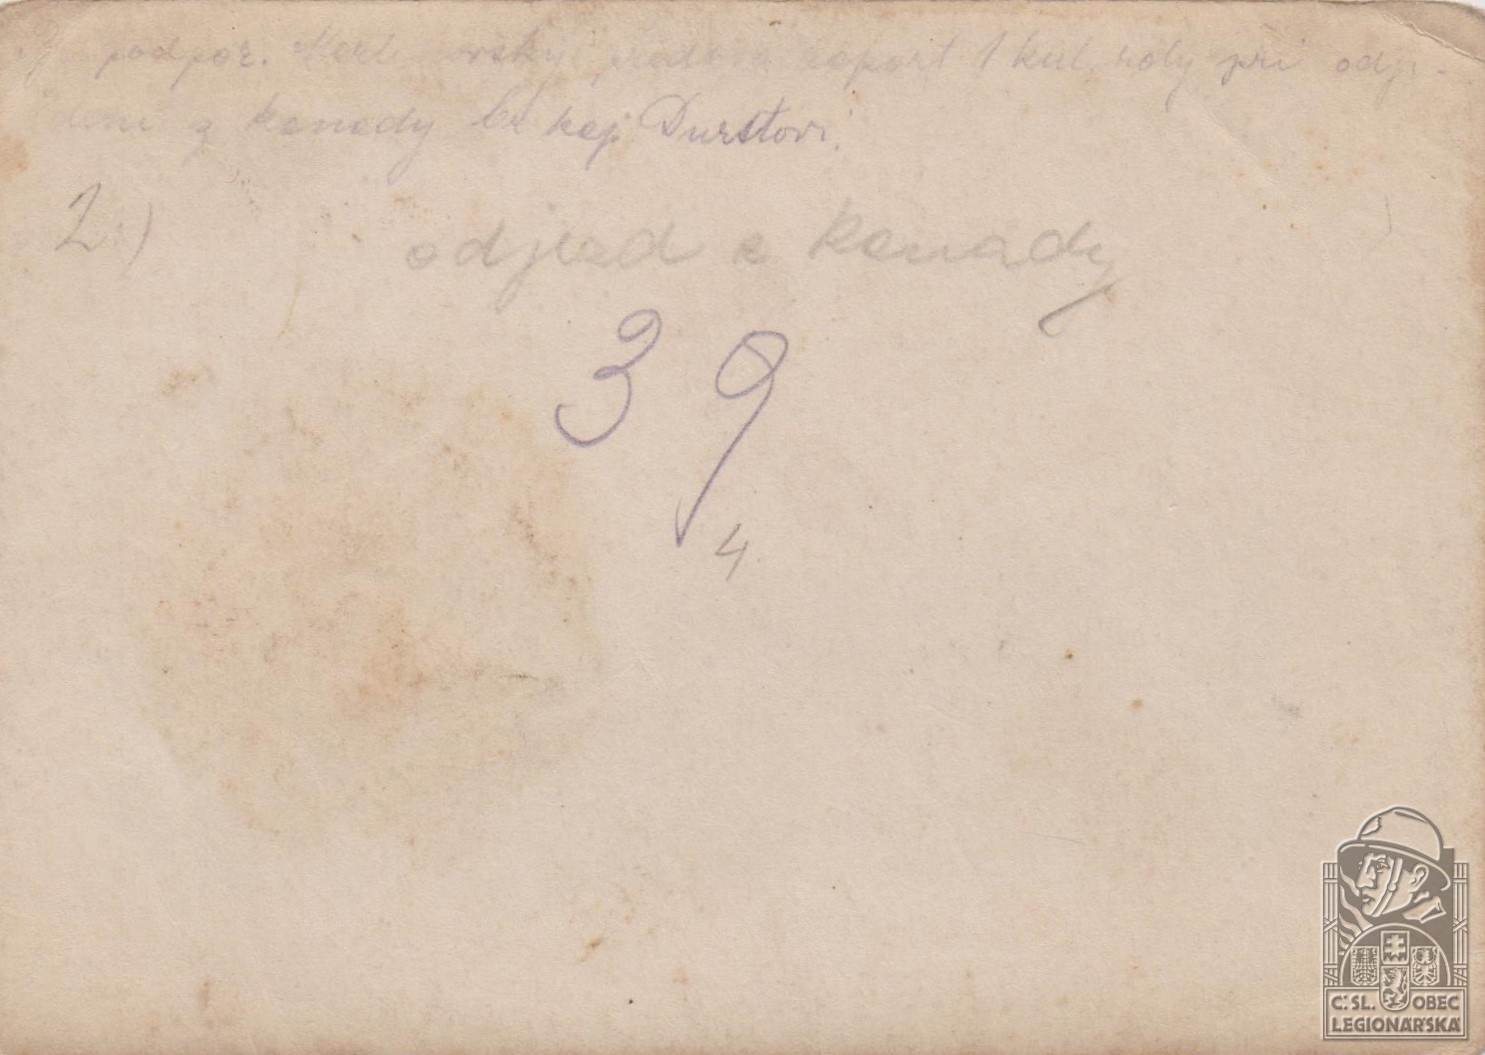 podpor. raport 1 kul. roty při odje-
z kanady br kap Durstovi.
2.)
odjezd z kanady
39
4
Č.SL. OBEC
LEGIONÁŘSKÁ